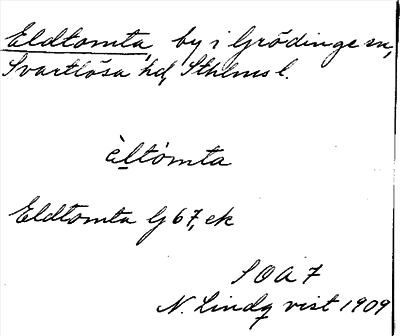 Eldtomta, by i Grödinge sn,
Svartlösa hd, Sthlms l.
èltòmta
Eldtomta G 67, ek
SOA 7
N. Lindqvist 1909